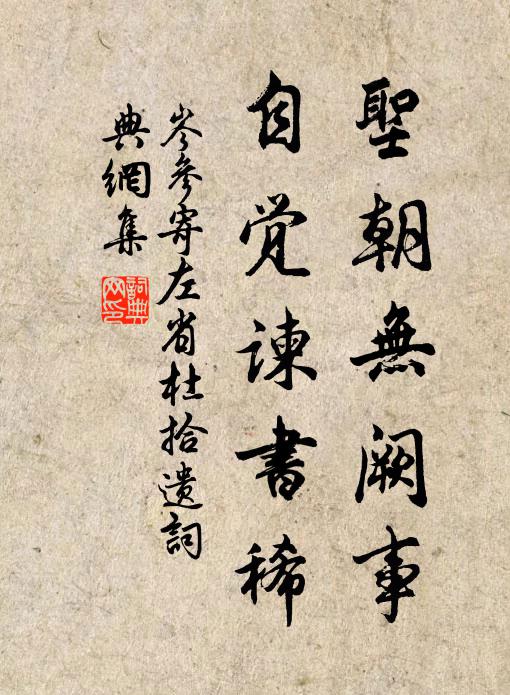 聖朝無闕事
自觉諫書稀
岑參寄左省杜拾遺詞
典網集
詞典
网印